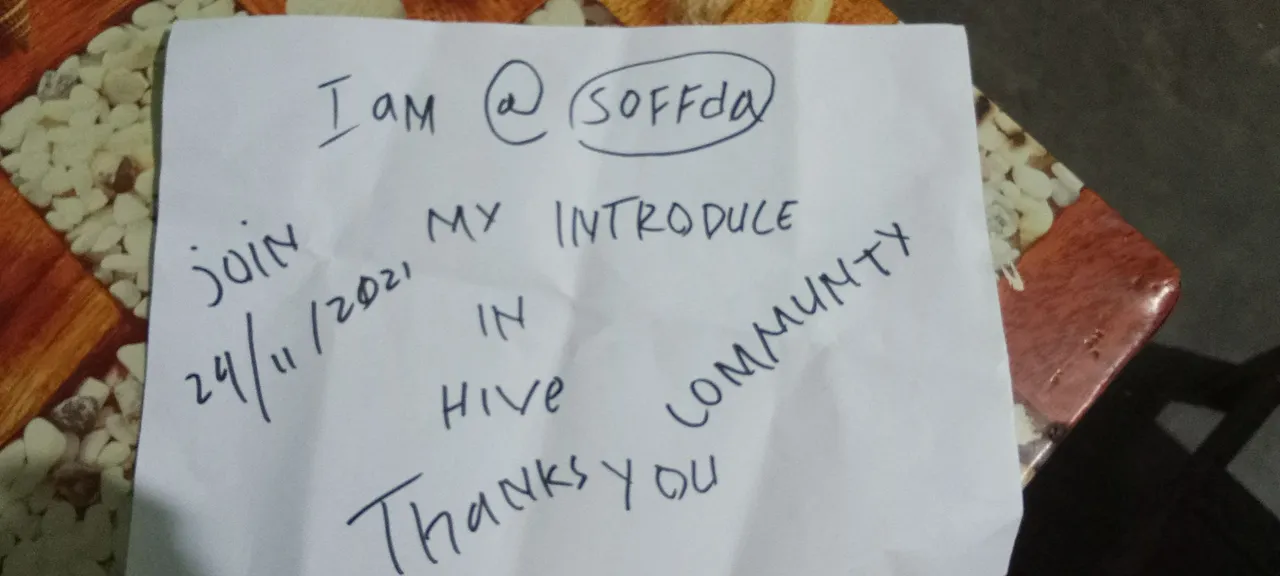 I am @ SOFFda
MY INTRODUCE
JOIN
24/11/2021
IN
HIVE
COMMUNTY
Thanks you